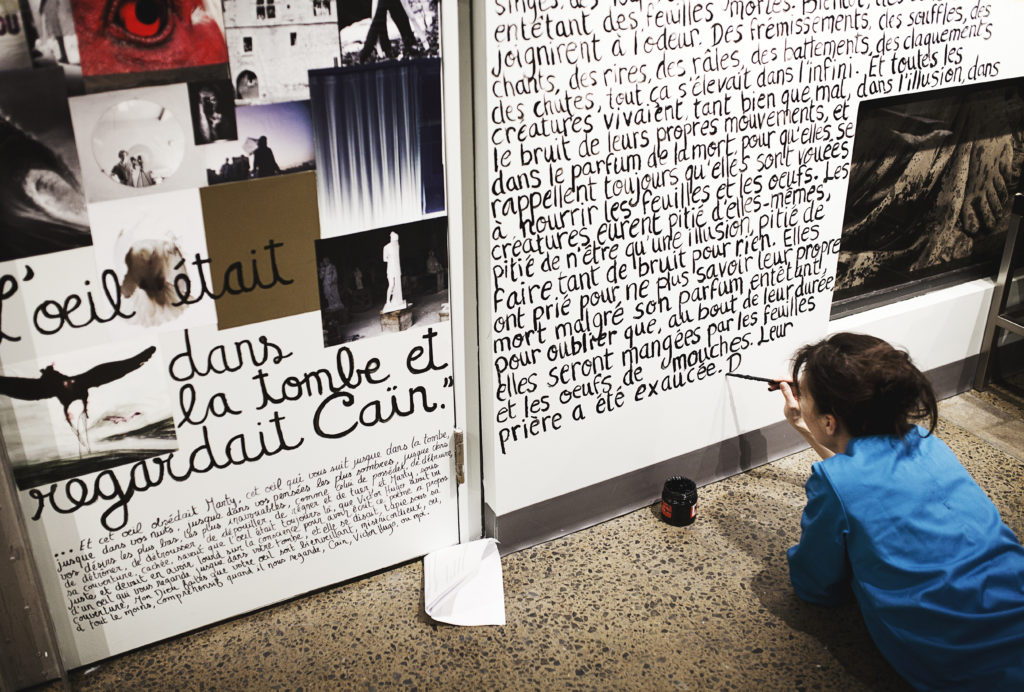 L'œil était
dans
la tombe et
regardait Caïn."
... Et cet oeil obsédait Marty, cet oeil qui vous suit jusque dans la tombe,
jusque dans vos nuits, jusque dans vos pensées les plus sombrées, jusque dans
vos désirs les plus bas, les plus inavouables, comme celui de posséder, de délirer,
de détrôner, de détrousser, de dépouiller, de régner et de tuer, et Marty, sous
sa couverture, cachée, savait que l'oeil était toujours là, que Victor Hugo avait vu
juste et devait en avoir lourd sur la conscience pour avoir écrit ce poème à propos
d'un oeil qui vous regarde jusque dans votre tombe, et elle se disait, tapie sous sa
couverture, Mon Dieu, faites que votre oeil soit bienveillant, miséricordieux, ou,
à tout le moins, compréhensif quand il nous regarde, Caïn, Victor Hugo, ou moi.
singes, des
entêtant, des feuilles mortes. Bientôt, des
joignirent à l'odeur. Des frémissements, des souffles, des
chants, des rires, des râles, des battements, des claquements
des chutes, tout ça s'élevait dans l'infini. Et toutes les
créatures vivaient, tant bien que mal, dans l'illusion, dans
le bruit de leurs propres mouvements, et
dans le parfum de la mort pour qu'elles se
rappellent toujours qu'elles sont vouées
à nourrir les feuilles et les oeufs. Les
créatures eurent pitié d'elles-mêmes,
pitié de n'être qu'une illusion, pitié de
faire tant de bruit pour rien. Elles
ont prié pour ne plus savoir leur propre
mort malgré son parfum entêtant,
pour oublier que, au bout de leur durée
elles seront mangées par les feuilles
et les oeufs de mouches. Leur
prière a été exaucée. D